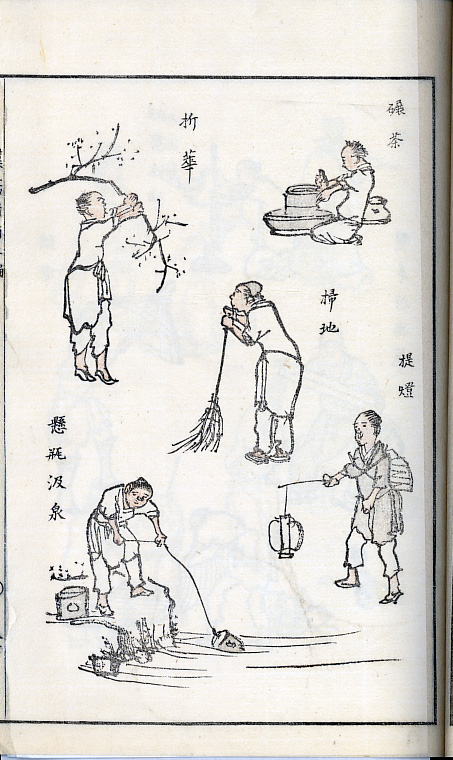 碾茶
折華
掃地
提燈
懸瓶汲泉